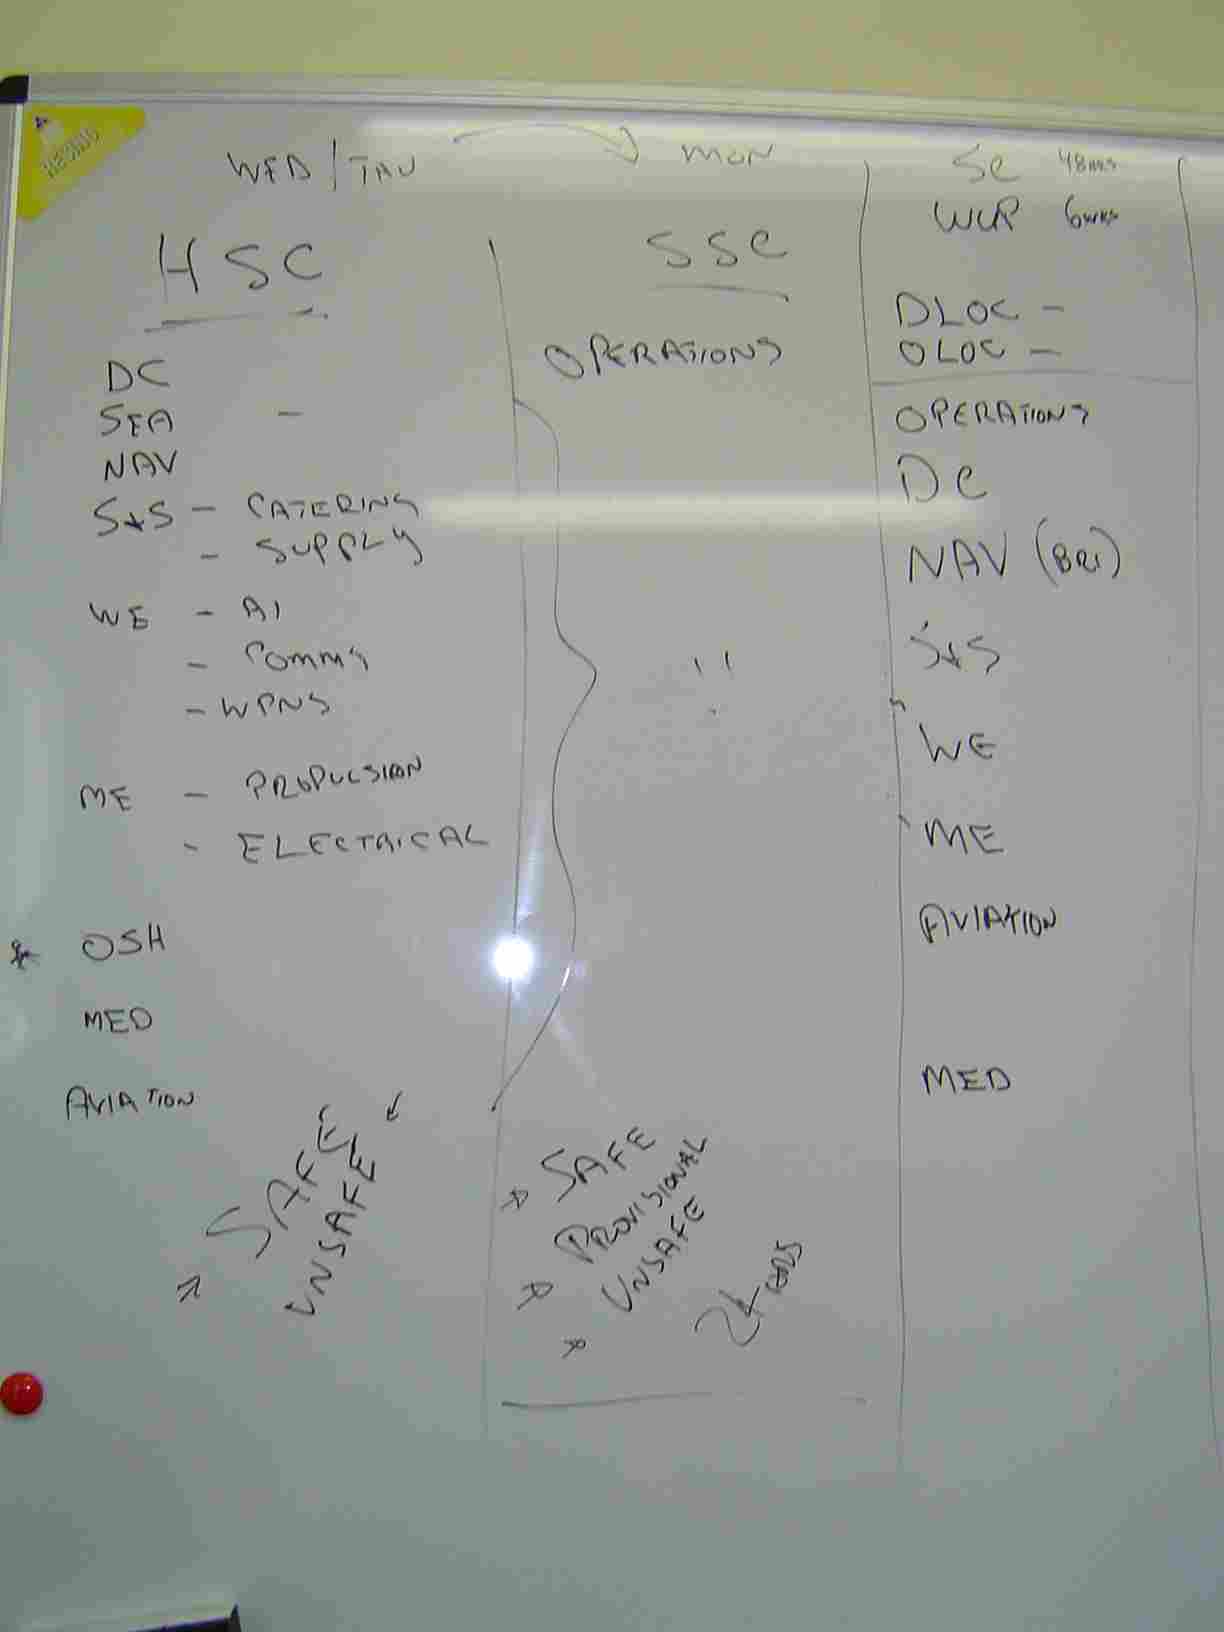 WED / THU
MON
HSC
DC
SEA -
NAV
S+S - CATERING
- SUPPLY
WE - AI
- COMMS
- WPNS
ME - PROPULSION
- ELECTRICAL
* OSH
MED
AVIATION
SAFE
UNSAFE
SSC
OPERATIONS
!!
SAFE
PROVISIONAL
UNSAFE
SC 48HRS
WUP 6WKS
DLOC -
OLOC -
OPERATIONS
DC
NAV (BRI)
S+S
WE
ME
AVIATION
MED